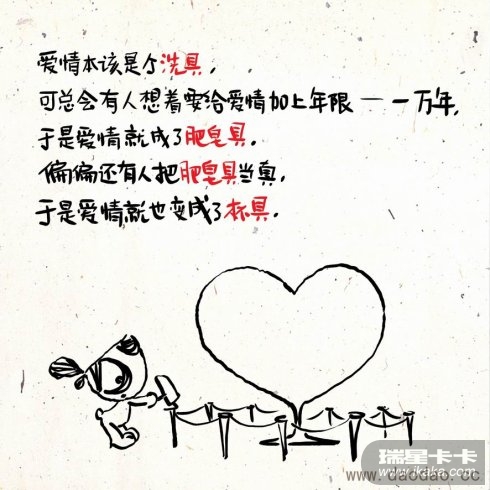 爱情本该是个洗具，
可总会有人想着要给爱情加上年限——一万年，
于是爱情就成了肥皂具。
偏偏还有人把肥皂具当真，
于是爱情就也变成了杯具。
瑞星卡卡
www.ikaka.com
www.daodao.cc